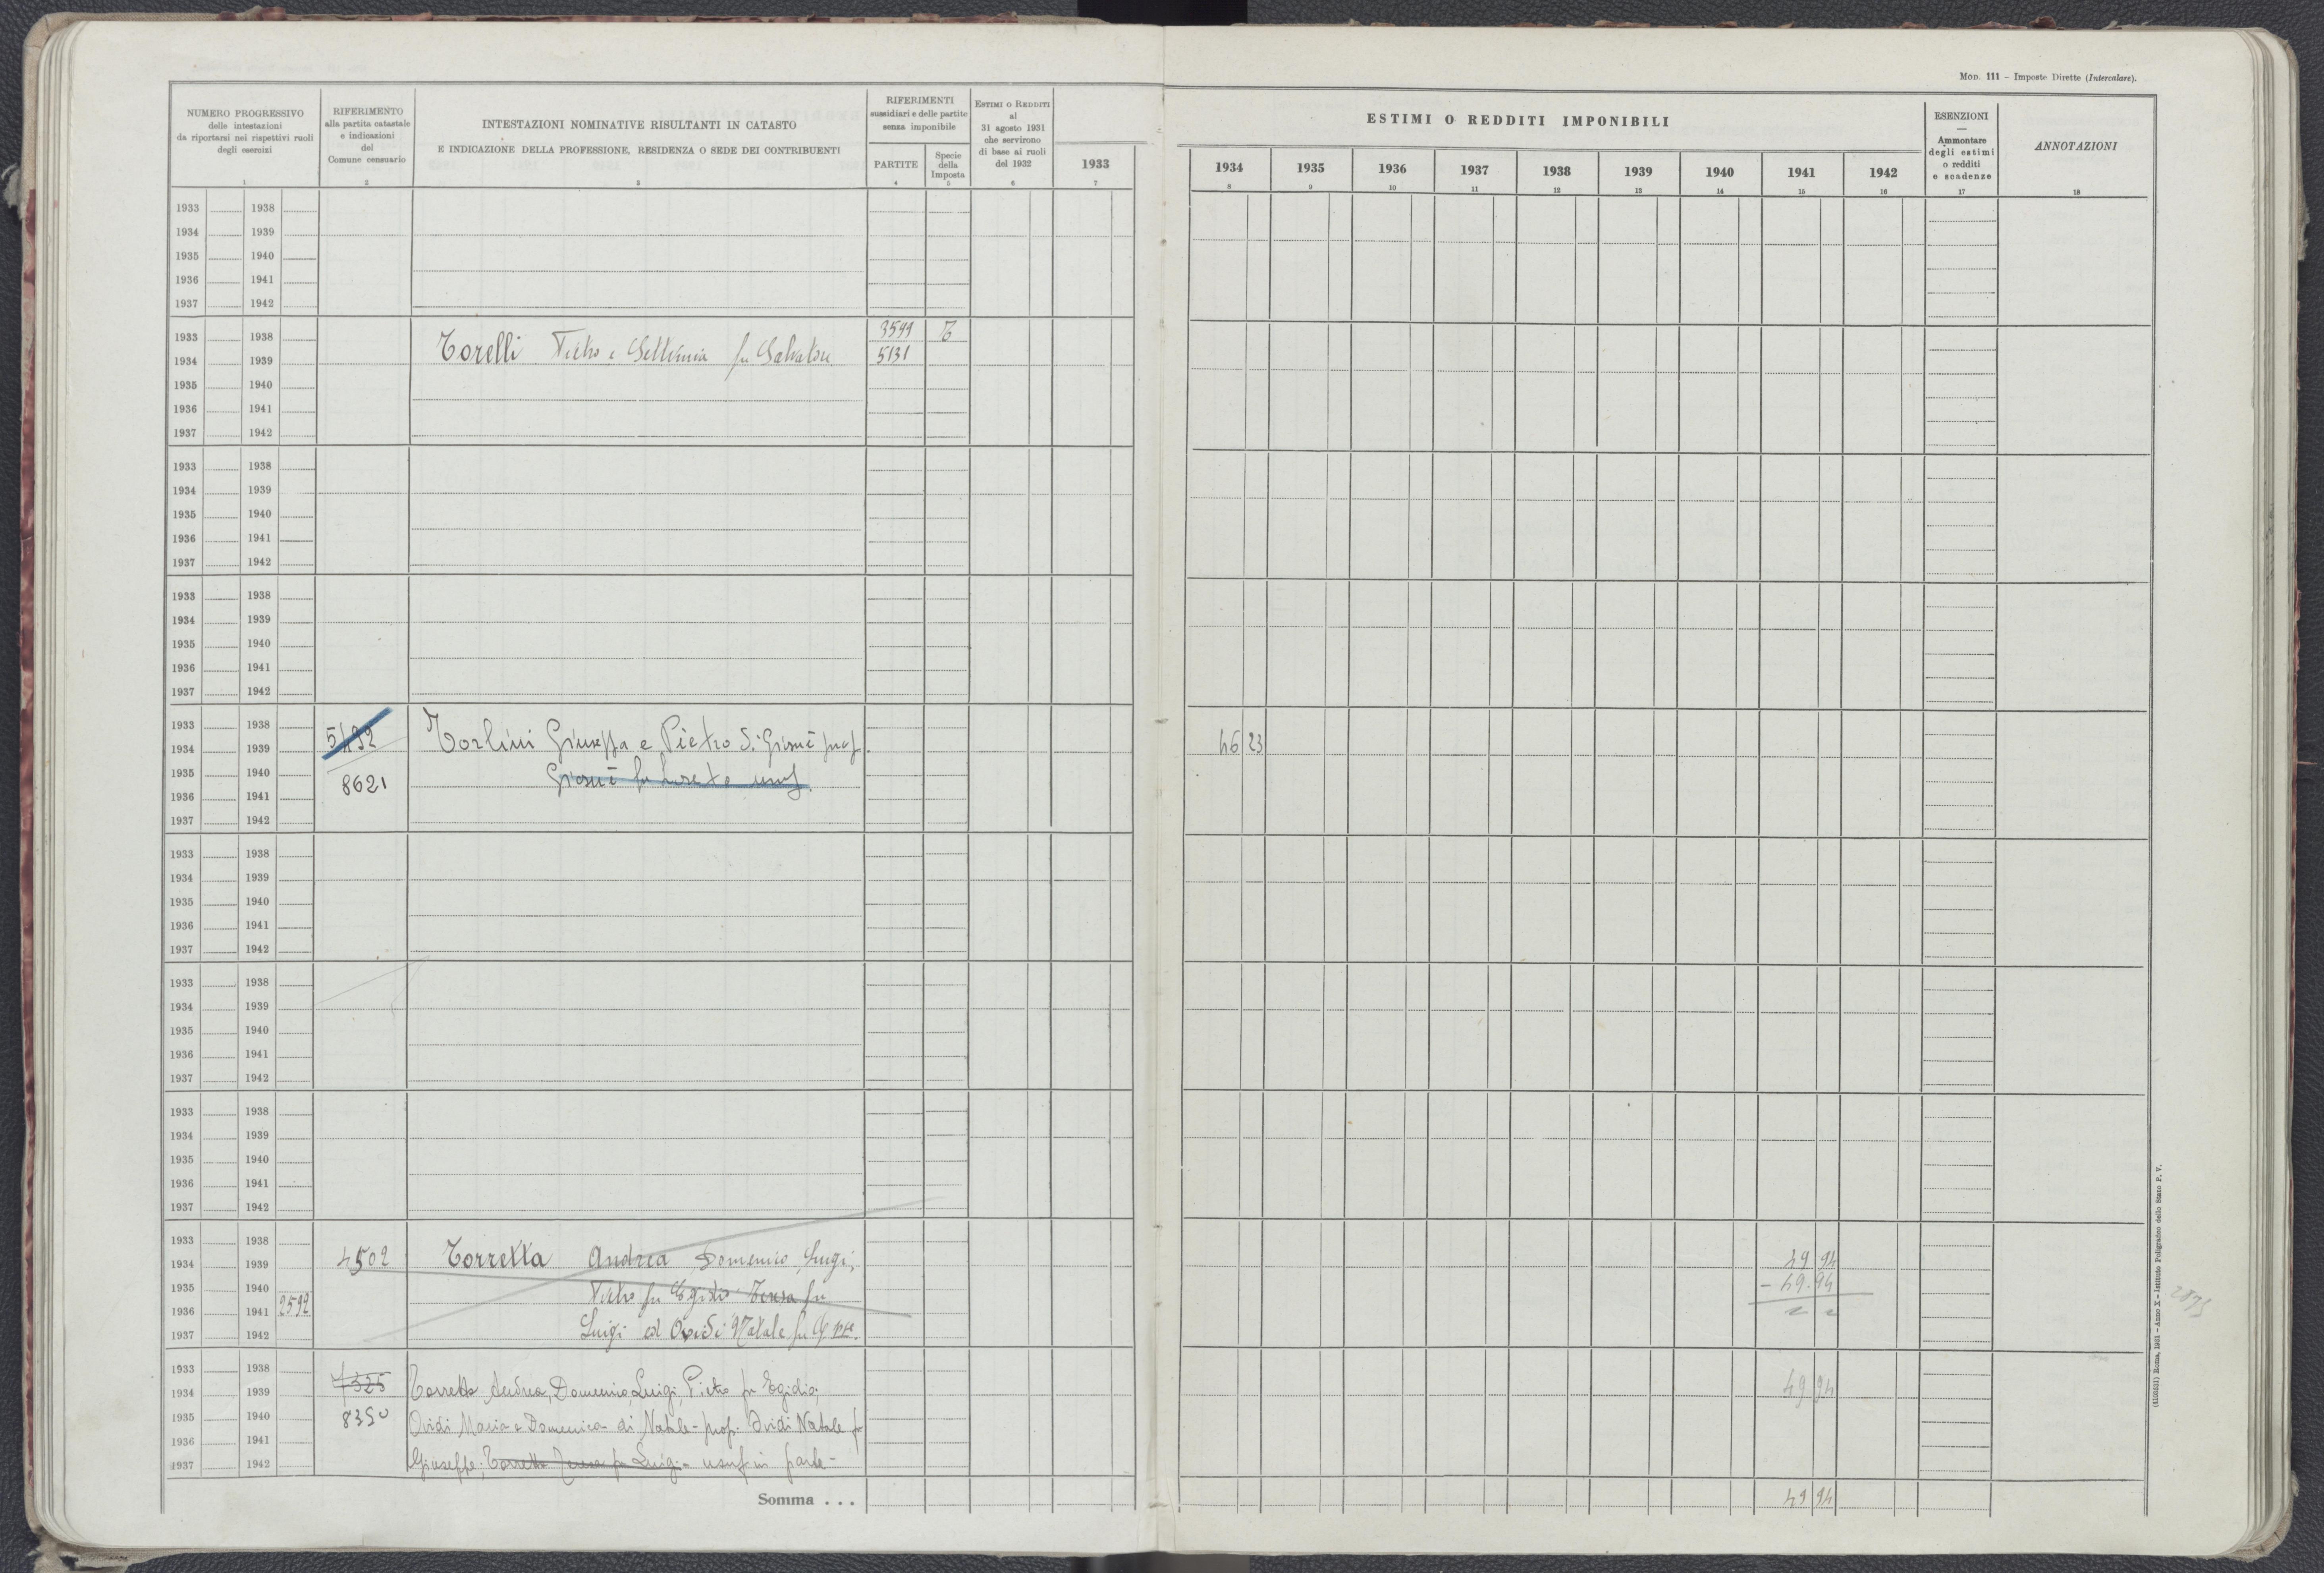 MOD. 111 – Imposte Dirette (Intercalare).
NUMERO PROGRESSIVO
delle intestazioni
da riportarsi nei rispettivi ruoli
degli esercizi
1
RIFERIMENTO
alla partita catastale
e indicazioni
del
Comune censuario
2
INTESTAZIONI NOMINATIVE RISULTANTI IN CATASTO
E INDICAZIONE DELLA PROFESSIONE, RESIDENZA O SEDE DEI CONTRIBUENTI
3
RIFERIMENTI
sussidiari e delle partite
senza imponibile
PARTITE
4
Specie
della
Imposta
5
ESTIMI O REDDITI
al
31 agosto 1931
che servirono
di base ai ruoli
del 1932
6
1933
7
ESTIMI O REDDITI IMPONIBILI
1934 1935 1936 1937 1938 1939 1940 1941 1942
8 9 10 11 12 13 14 15 16
ESENZIONI
—
Ammontare
degli estimi
o redditi
e scadenze
17
ANNOTAZIONI
18
1933 1938
1934 1939
1935 1940
1936 1941
1937 1942
1933 1938 3599 T
1934 1939 Torelli Pietro e Settimia fu Salvatore 5131
1935 1940
1936 1941
1937 1942
1933 1938
1934 1939
1935 1940
1936 1941
1937 1942
1933 1938
1934 1939
1935 1940
1936 1941
1937 1942
1933 1938
1934 1939 5492 Torlini Giuseppa e Pietro di Giosuè prop. 46 23
1935 1940 Giosuè fu Loreto usuf.
1936 1941 8621
1937 1942
1933 1938
1934 1939
1935 1940
1936 1941
1937 1942
1933 1938
1934 1939
1935 1940
1936 1941
1937 1942
1933 1938
1934 1939
1935 1940
1936 1941
1937 1942
1933 1938
1934 1939 4502 Torretta Andrea Domenico, Luigi, 49 94
1935 1940 Pietro fu Egidio Teresa fu – 49.94
1936 1941 2592
1937 1942 Luigi ed Ovidi Natale fu Gppe.
1933 1938 7325
1934 1939 Torretta Andrea, Domenico, Luigi, Pietro fu Egidio; 49 94
1935 1940 8350 Ovidi Maria e Domenica di Natale - prop. Ovidi Natale fu
1936 1941
1937 1942 Giuseppe; Torretta Teresa fu Luigi - usuf. in parte -
Somma . . . 49 94
(4103531) Roma, 1931 – Anno X – Istituto Poligrafico dello Stato P. V.